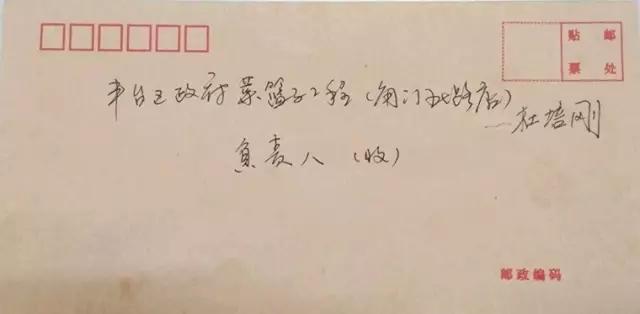 贴 邮
票 处
丰台区政府菜篮子工程(角门西路店)
—杜培刚
负责人(收)
邮政编码